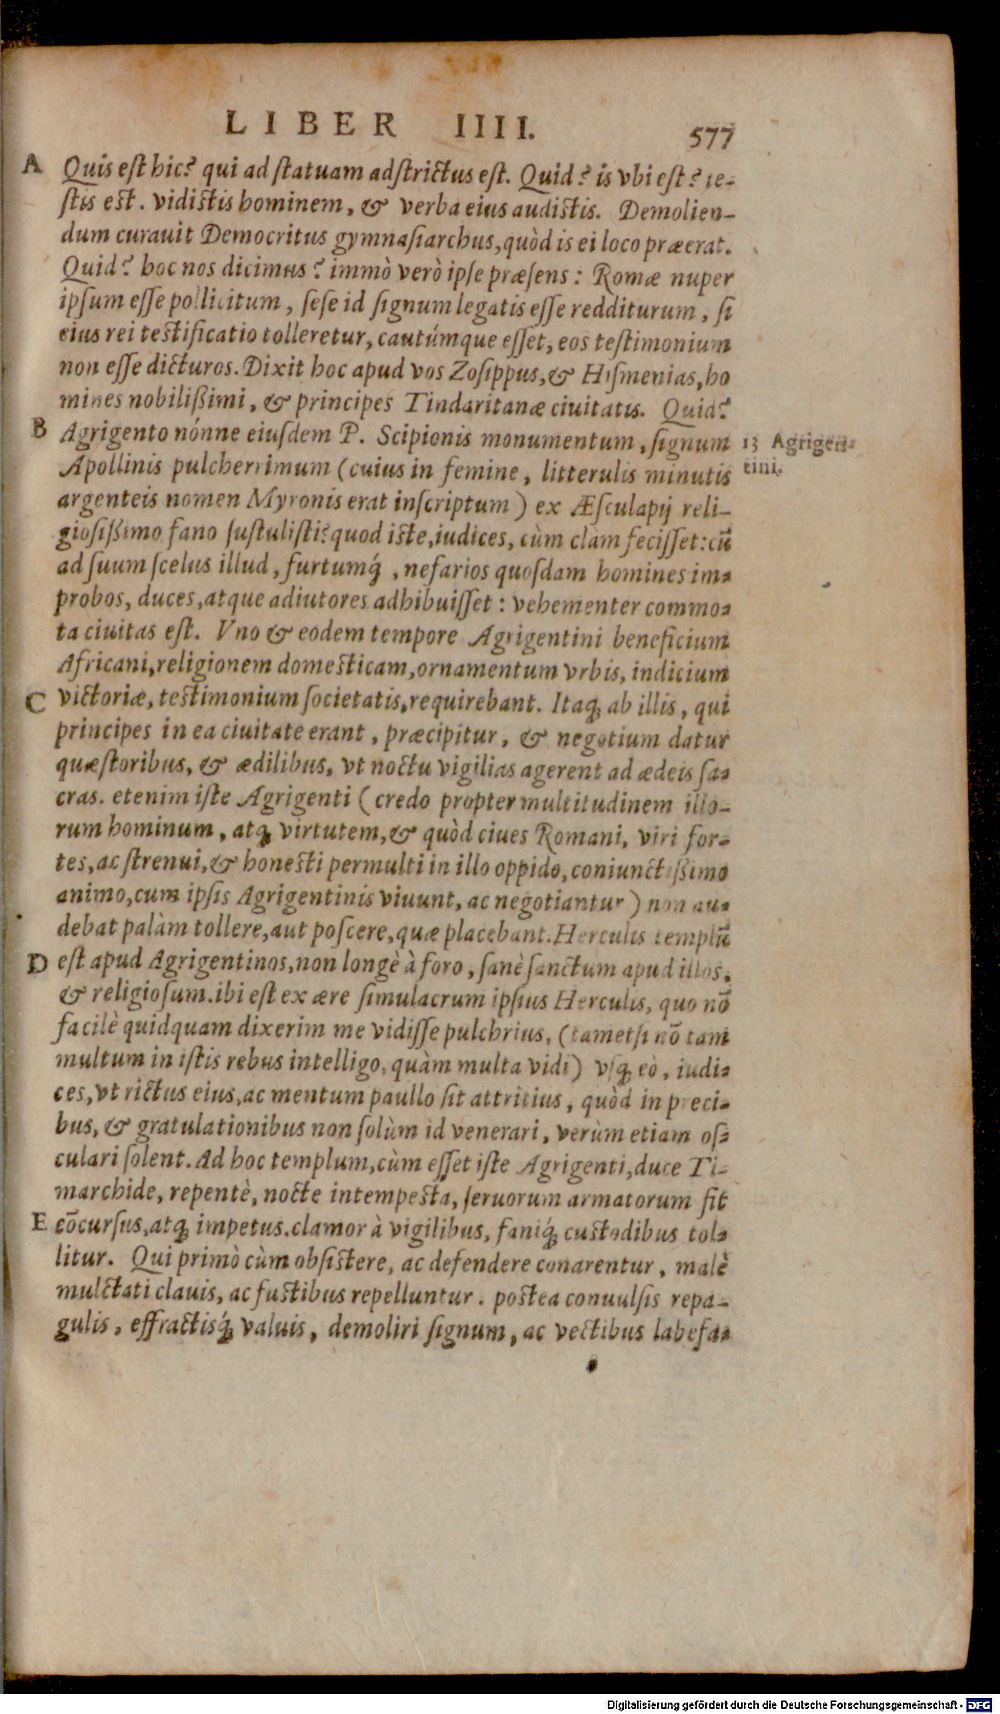 LIBER IIII. 577
A Quis est hic? qui ad statuam adstrictus est. Quid? is vbi est? te-
stis est. vidistis hominem, & verba eius audistis. Demolien-
dum curauit Democritus gymnasiarchus, quòd is ei loco præerat.
Quid? hoc nos dicimus? immò verò ipse præsens: Romæ nuper
ipsum esse pollicitum, sese id signum legatis esse redditurum, si
eius rei testificatio tolleretur, cautúmque esset, eos testimonium
non esse dicturos. Dixit hoc apud vos Zosippus, & Hismenias, ho
mines nobilißimi, & principes Tindaritanæ ciuitatis. Quid?
B Agrigento nónne eiusdem P. Scipionis monumentum, signum
13 Agrigen-
tini.
Apollinis pulcherrimum (cuius in femine, litterulis minutis
argenteis nomen Myronis erat inscriptum) ex Æsculapij reli-
giosißimo fano sustulisti? quod iste, iudices, cùm clàm fecisset: cū
ad suum scelus illud, furtumq́, nefarios quosdam homines im-
probos, duces, atque adiutores adhibuisset: vehementer commo-
ta ciuitas est. Vno & eodem tempore Agrigentini beneficium
Africani, religionem domesticam, ornamentum vrbis, indicium
C victoriæ, testimonium societatis, requirebant. Itaq; ab illis, qui
principes in ea ciuitate erant, præcipitur, & negotium datur
quæstoribus, & ædilibus, vt noctu vigilias agerent ad ædeis sa-
cras. etenim iste Agrigenti (credo propter multitudinem illo-
rum hominum, atq; virtutem, & quòd ciues Romani, viri for-
tes, ac strenui, & honesti permulti in illo oppido, coniunctißimo
animo, cum ipsis Agrigentinis viuunt, ac negotiantur) non au-
debat palàm tollere, aut poscere, quæ placebant. Herculis templū
D est apud Agrigentinos, non longè à foro, sanè sanctum apud illos,
& religiosum. ibi est ex ære simulacrum ipsius Herculis, quo nō
facilè quidquam dixerim me vidisse pulchrius, (tametsi nō tam
multum in istis rebus intelligo, quàm multa vidi) vsq; eò, iudi-
ces, vt rictus eius, ac mentum paullo sit attritius, quòd in preci-
bus, & gratulationibus non solùm id venerari, verùm etiam os-
culari solent. Ad hoc templum, cùm esset iste Agrigenti, duce Ti-
marchide, repentè, nocte intempesta, seruorum armatorum fit
E cōcursus, atq; impetus. clamor à vigilibus, faniq́; custodibus tol-
litur. Qui primò cùm obsistere, ac defendere conarentur, malè
mulctati clauis, ac fustibus repelluntur. postea conuulsis repa-
gulis, effractisq́; valuis, demoliri signum, ac vectibus labefa-
Digitalisierung gefördert durch die Deutsche Forschungsgemeinschaft - DFG